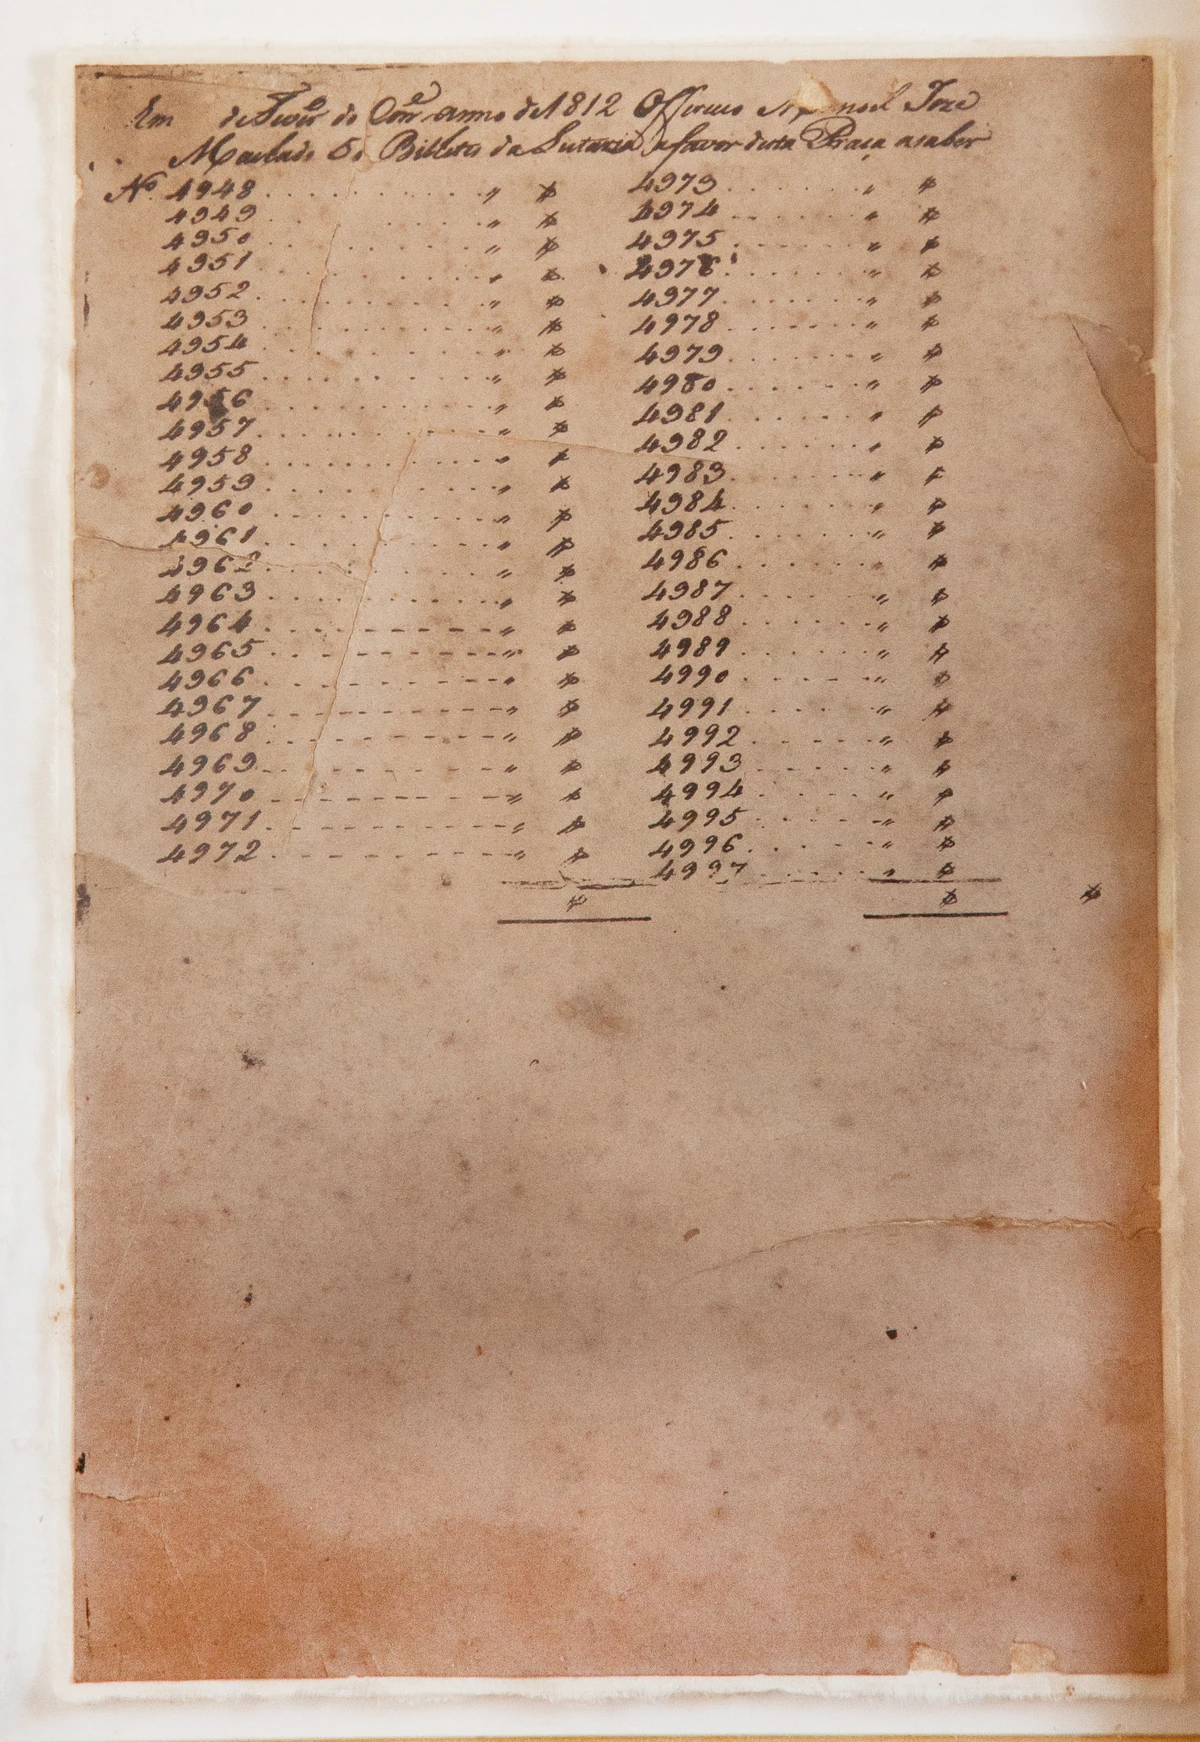 Em de Fevr.º do Corr.e anno de 1812 Offereceo Manoel Joze
Machado 50 Billetes da Lutaria a favor desta Praça a saber
Nº 4948 . . . . . . . . . . " $
4949 . . . . . . . . . . " $
4950 . . . . . . . . . . " $
4951 . . . . . . . . . . " $
4952 . . . . . . . . . . " $
4953 . . . . . . . . . . " $
4954 . . . . . . . . . . " $
4955 . . . . . . . . . . " $
4956 . . . . . . . . . . " $
4957 . . . . . . . . . . " $
4958 . . . . . . . . . . " $
4959 . . . . . . . . . . " $
4960 . . . . . . . . . . " $
4961 . . . . . . . . . . " $
4962 . . . . . . . . . . " $
4963 . . . . . . . . . . " $
4964 . . . . . . . . . . " $
4965 . . . . . . . . . . " $
4966 . . . . . . . . . . " $
4967 . . . . . . . . . . " $
4968 . . . . . . . . . . " $
4969 . . . . . . . . . . " $
4970 . . . . . . . . . . " $
4971 . . . . . . . . . . " $
4972 . . . . . . . . . . " $
$
4973 . . . . . . " $
4974 . . . . . . " $
4975 . . . . . . " $
4976 . . . . . . " $
4977 . . . . . . " $
4978 . . . . . . " $
4979 . . . . . . " $
4980 . . . . . . " $
4981 . . . . . . " $
4982 . . . . . . " $
4983 . . . . . . " $
4984 . . . . . . " $
4985 . . . . . . " $
4986 . . . . . . " $
4987 . . . . . . " $
4988 . . . . . . " $
4989 . . . . . . " $
4990 . . . . . . " $
4991 . . . . . . " $
4992 . . . . . . " $
4993 . . . . . . " $
4994 . . . . . . " $
4995 . . . . . . " $
4996 . . . . . . " $
4997 . . . . . . " $
$ $